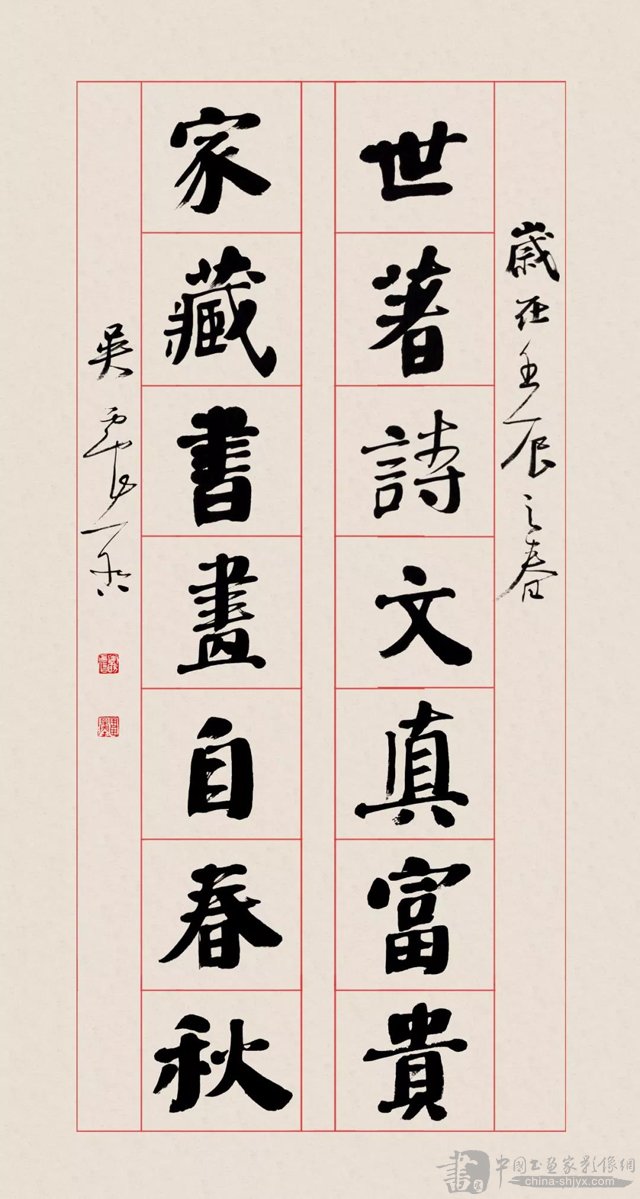 歲在壬辰之春
世著詩文真富貴
家藏書畫自春秋
吳
中國书画家影像網
china-shjyx.com